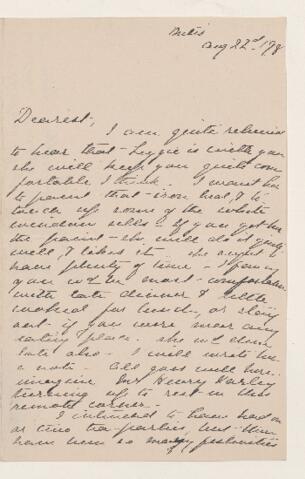 Aug 22nd 1/98
Dearest,
I am quite relieved
to hear that Lizzie is with you
she will keep you quite com
fortable I think. I want her
to paint that iron bed, & to
touch up some of the white
window sills - if you get her
the paint - she will do it quite
well, & likes it - she ought to
have plenty of time - I fancy
you wd be most comfortable
with late dinner & little
cooked for lunch, or
out if you were near any
eating place. she wd
I will write her
a note. All goes well here.
imagine Mr Henry
turning up to rest in this
remote corner -
I intended to have had one
or two tea-parties, but there
have been so many festivities